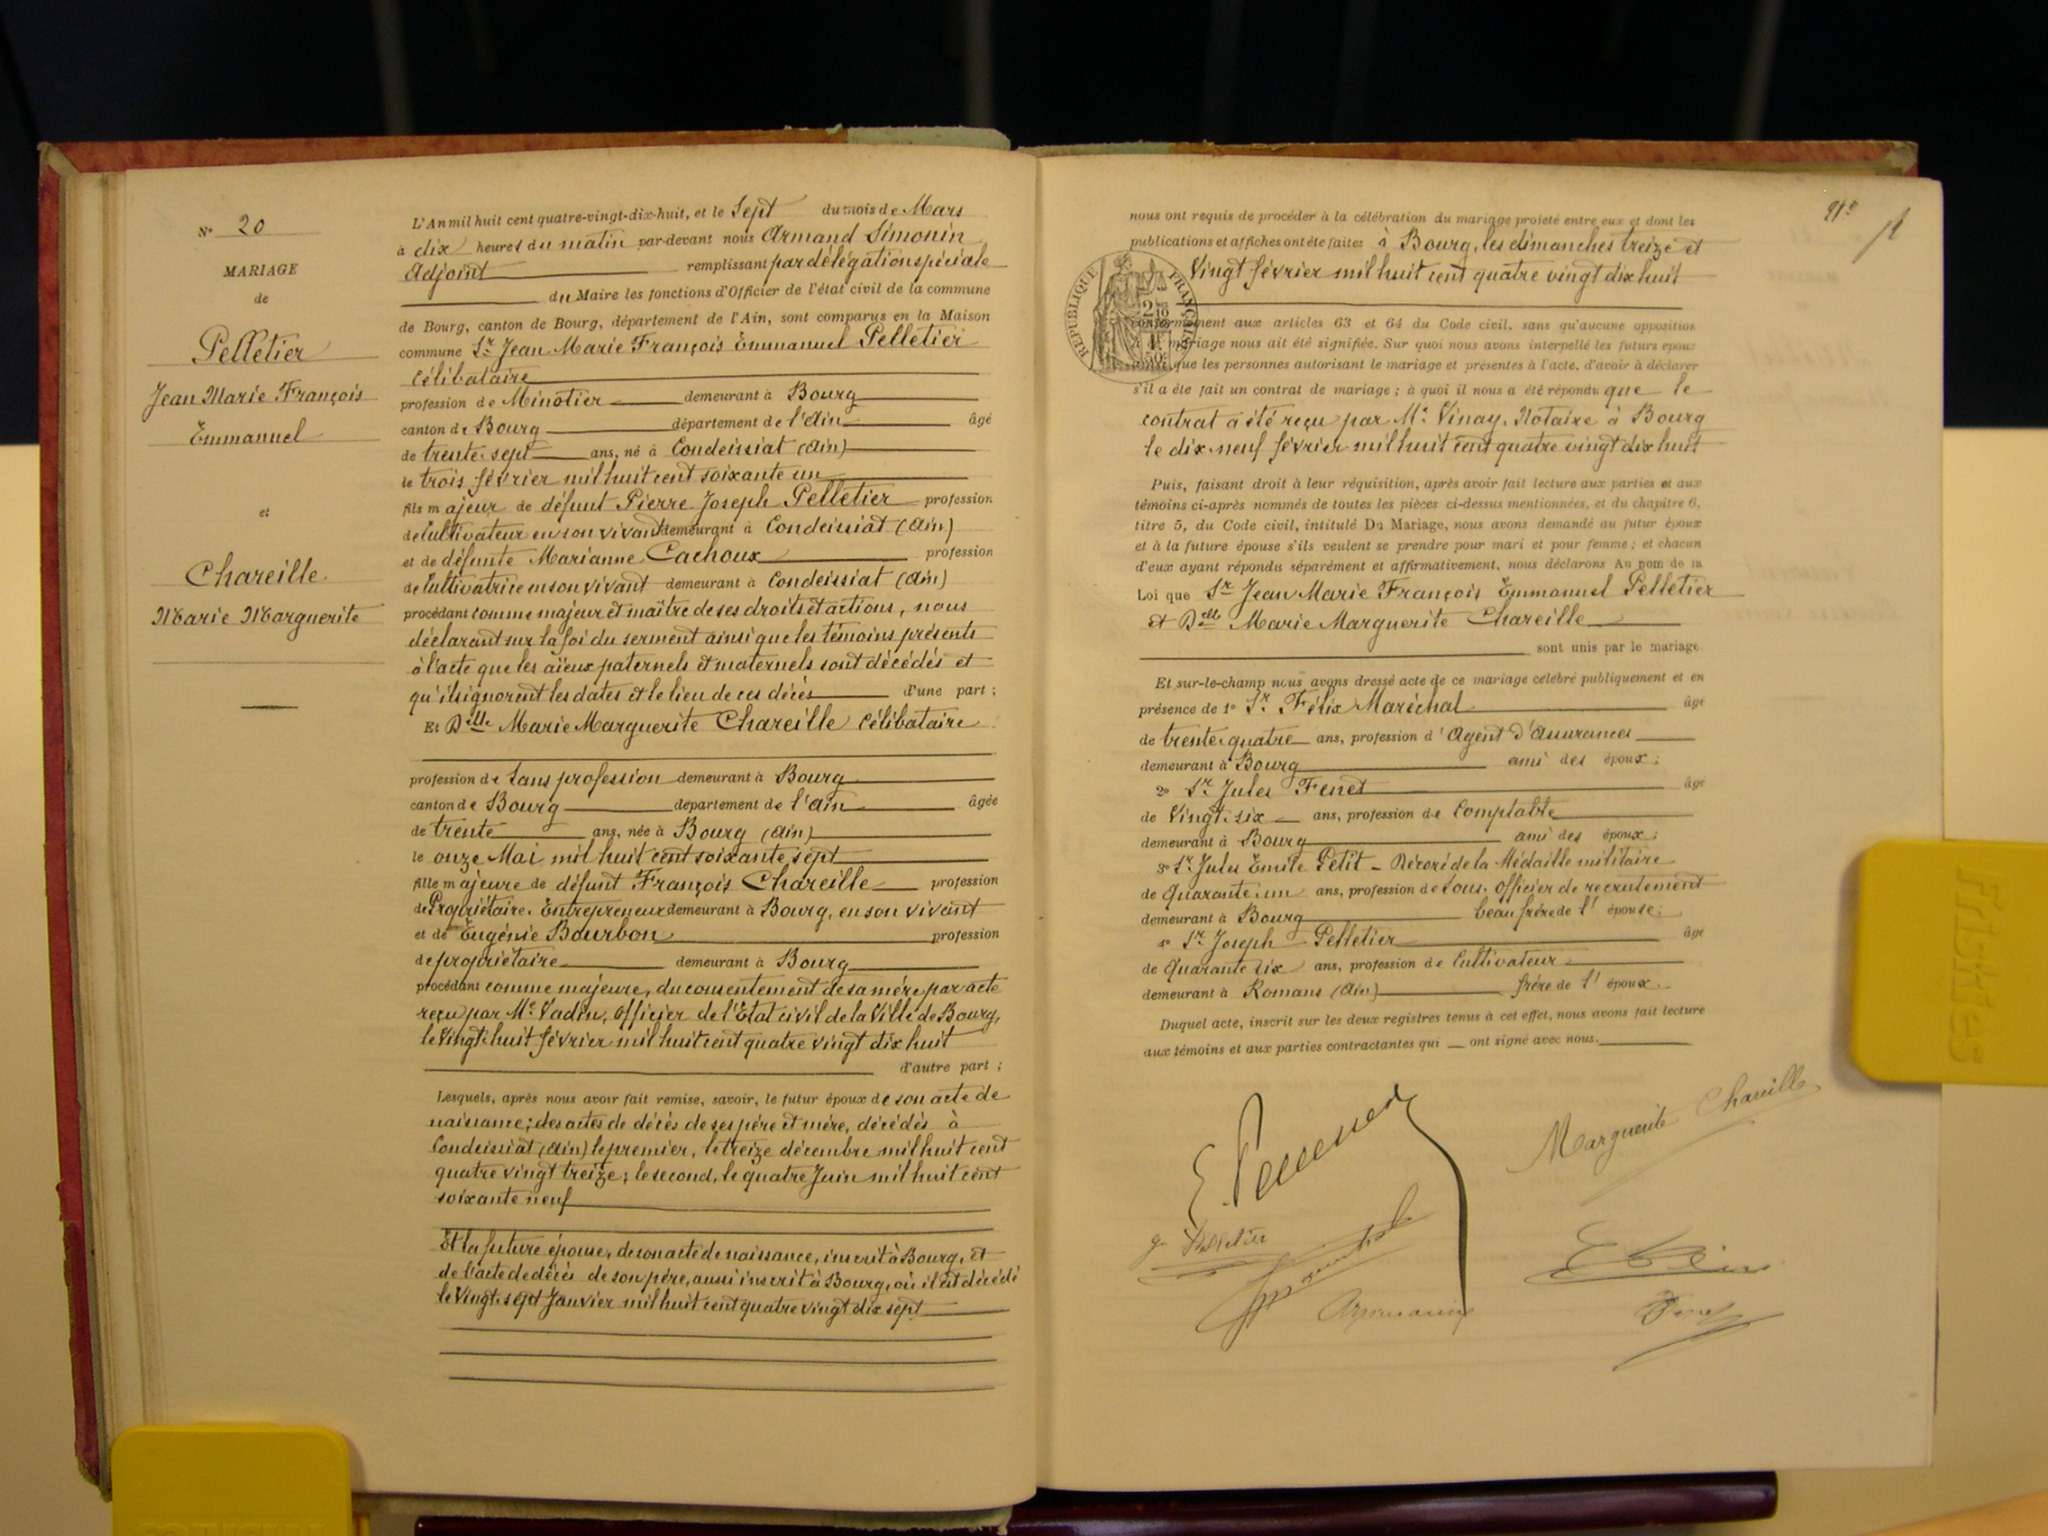 Nº 20
MARIAGE
de
Pelletier
Jean Marie François
Emmanuel
et
Chareille
Marie Marguerite
L'An mil huit cent quatre-vingt-dix-huit, et le Sept du mois de Mars
à dix heures du matin par-devant nous Armand Simonin
Adjoint remplissant par délégation spéciale
du Maire les fonctions d'Officier de l'état civil de la commune
de Bourg, canton de Bourg, département de l'Ain, sont comparus en la Maison
commune Sr Jean Marie François Emmanuel Pelletier
Célibataire
profession de Minotier demeurant à Bourg
canton de Bourg département de l'Ain âgé
de trente-sept ans, né à Condeissiat (Ain)
le trois février mil huit cent soixante un
fils majeur de défunt Pierre Joseph Pelletier profession
de Cultivateur en son vivant demeurant à Condeissiat (Ain)
et de défunte Marianne Cachoux profession
de Cultivatrice en son vivant demeurant à Condeissiat (Ain)
procédant comme majeur et maître de ses droits et actions, nous
déclarant sur la foi du serment ainsi que les témoins présents
à l'acte que les aïeux paternels et maternels sont décédés et
qu'ils ignorent les dates et le lieu de ces décès d'une part ;
Et Delle Marie Marguerite Chareille Célibataire
profession de Sans profession demeurant à Bourg
canton de Bourg département de l'Ain âgée
de trente ans, née à Bourg (Ain)
le onze Mai mil huit cent soixante sept
fille majeure de défunt François Chareille profession
de Propriétaire-Entrepreneur demeurant à Bourg, en son vivant
et de Eugénie Bourbon profession
de propriétaire demeurant à Bourg
procédant comme majeure, du consentement de sa mère par acte
reçu par Mr Vadin, Officier de l'Etat civil de la Ville de Bourg,
le Vingt-huit février mil huit cent quatre vingt dix huit
d'autre part ;
Lesquels, après nous avoir fait remise, savoir, le futur époux de son acte de
naissance ; des actes de décès de ses père et mère, décédés à
Condeissiat (Ain) le premier, le treize décembre mil huit cent
quatre vingt treize ; le second, le quatre Juin mil huit cent
soixante neuf
Et la future épouse, de son acte de naissance, inscrit à Bourg, et
de l'acte de décès de son père, aussi inscrit à Bourg, où il est décédé
le Vingt-sept Janvier mil huit cent quatre vingt dix sept
nous ont requis de procéder à la célébration du mariage projeté entre eux et dont les
publications et affiches ont été faites à Bourg, les dimanches treize et
Vingt février mil huit cent quatre vingt dix huit
RÉPUBLIQUE FRANÇAISE
conformément aux articles 63 et 64 du Code civil, sans qu'aucune opposition
mariage nous ait été signifiée. Sur quoi nous avons interpellé les futurs époux
que les personnes autorisant le mariage et présentes à l'acte, d'avoir à déclarer
s'il a été fait un contrat de mariage ; à quoi il nous a été répondu que le
contrat a été reçu par Me Vinay, Notaire à Bourg
le dix-neuf février mil huit cent quatre vingt dix huit
Puis, faisant droit à leur réquisition, après avoir fait lecture aux parties et aux
témoins ci-après nommés de toutes les pièces ci-dessus mentionnées, et du chapitre 6,
titre 5, du Code civil, intitulé Du Mariage, nous avons demandé au futur époux
et à la future épouse s'ils veulent se prendre pour mari et pour femme ; et chacun
d'eux ayant répondu séparément et affirmativement, nous déclarons Au nom de la
Loi que Sr Jean Marie François Emmanuel Pelletier
et Delle Marie Marguerite Chareille
sont unis par le mariage.
Et sur-le-champ nous avons dressé acte de ce mariage célébré publiquement et en
présence de 1º Sr Félix Maréchal âgé
de trente-quatre ans, profession d'Agent d'Assurances
demeurant à Bourg ami des époux ;
2º Sr Jules Fenet âgé
de Vingt-six ans, profession de Comptable
demeurant à Bourg ami des époux ;
3º Sr Jules Emile Petit - Décoré de la Médaille militaire
de Quarante-un ans, profession de Sous-Officier de recrutement
demeurant à Bourg beau frère de l' épouse ;
4º Sr Joseph Pelletier âgé
de Quarante six ans, profession de Cultivateur
demeurant à Romans (Ain) frère de l' époux
Duquel acte, inscrit sur les deux registres tenus à cet effet, nous avons fait lecture
aux témoins et aux parties contractantes qui ont signé avec nous.
Marguerite Chareille
Pelletier
Fristiles